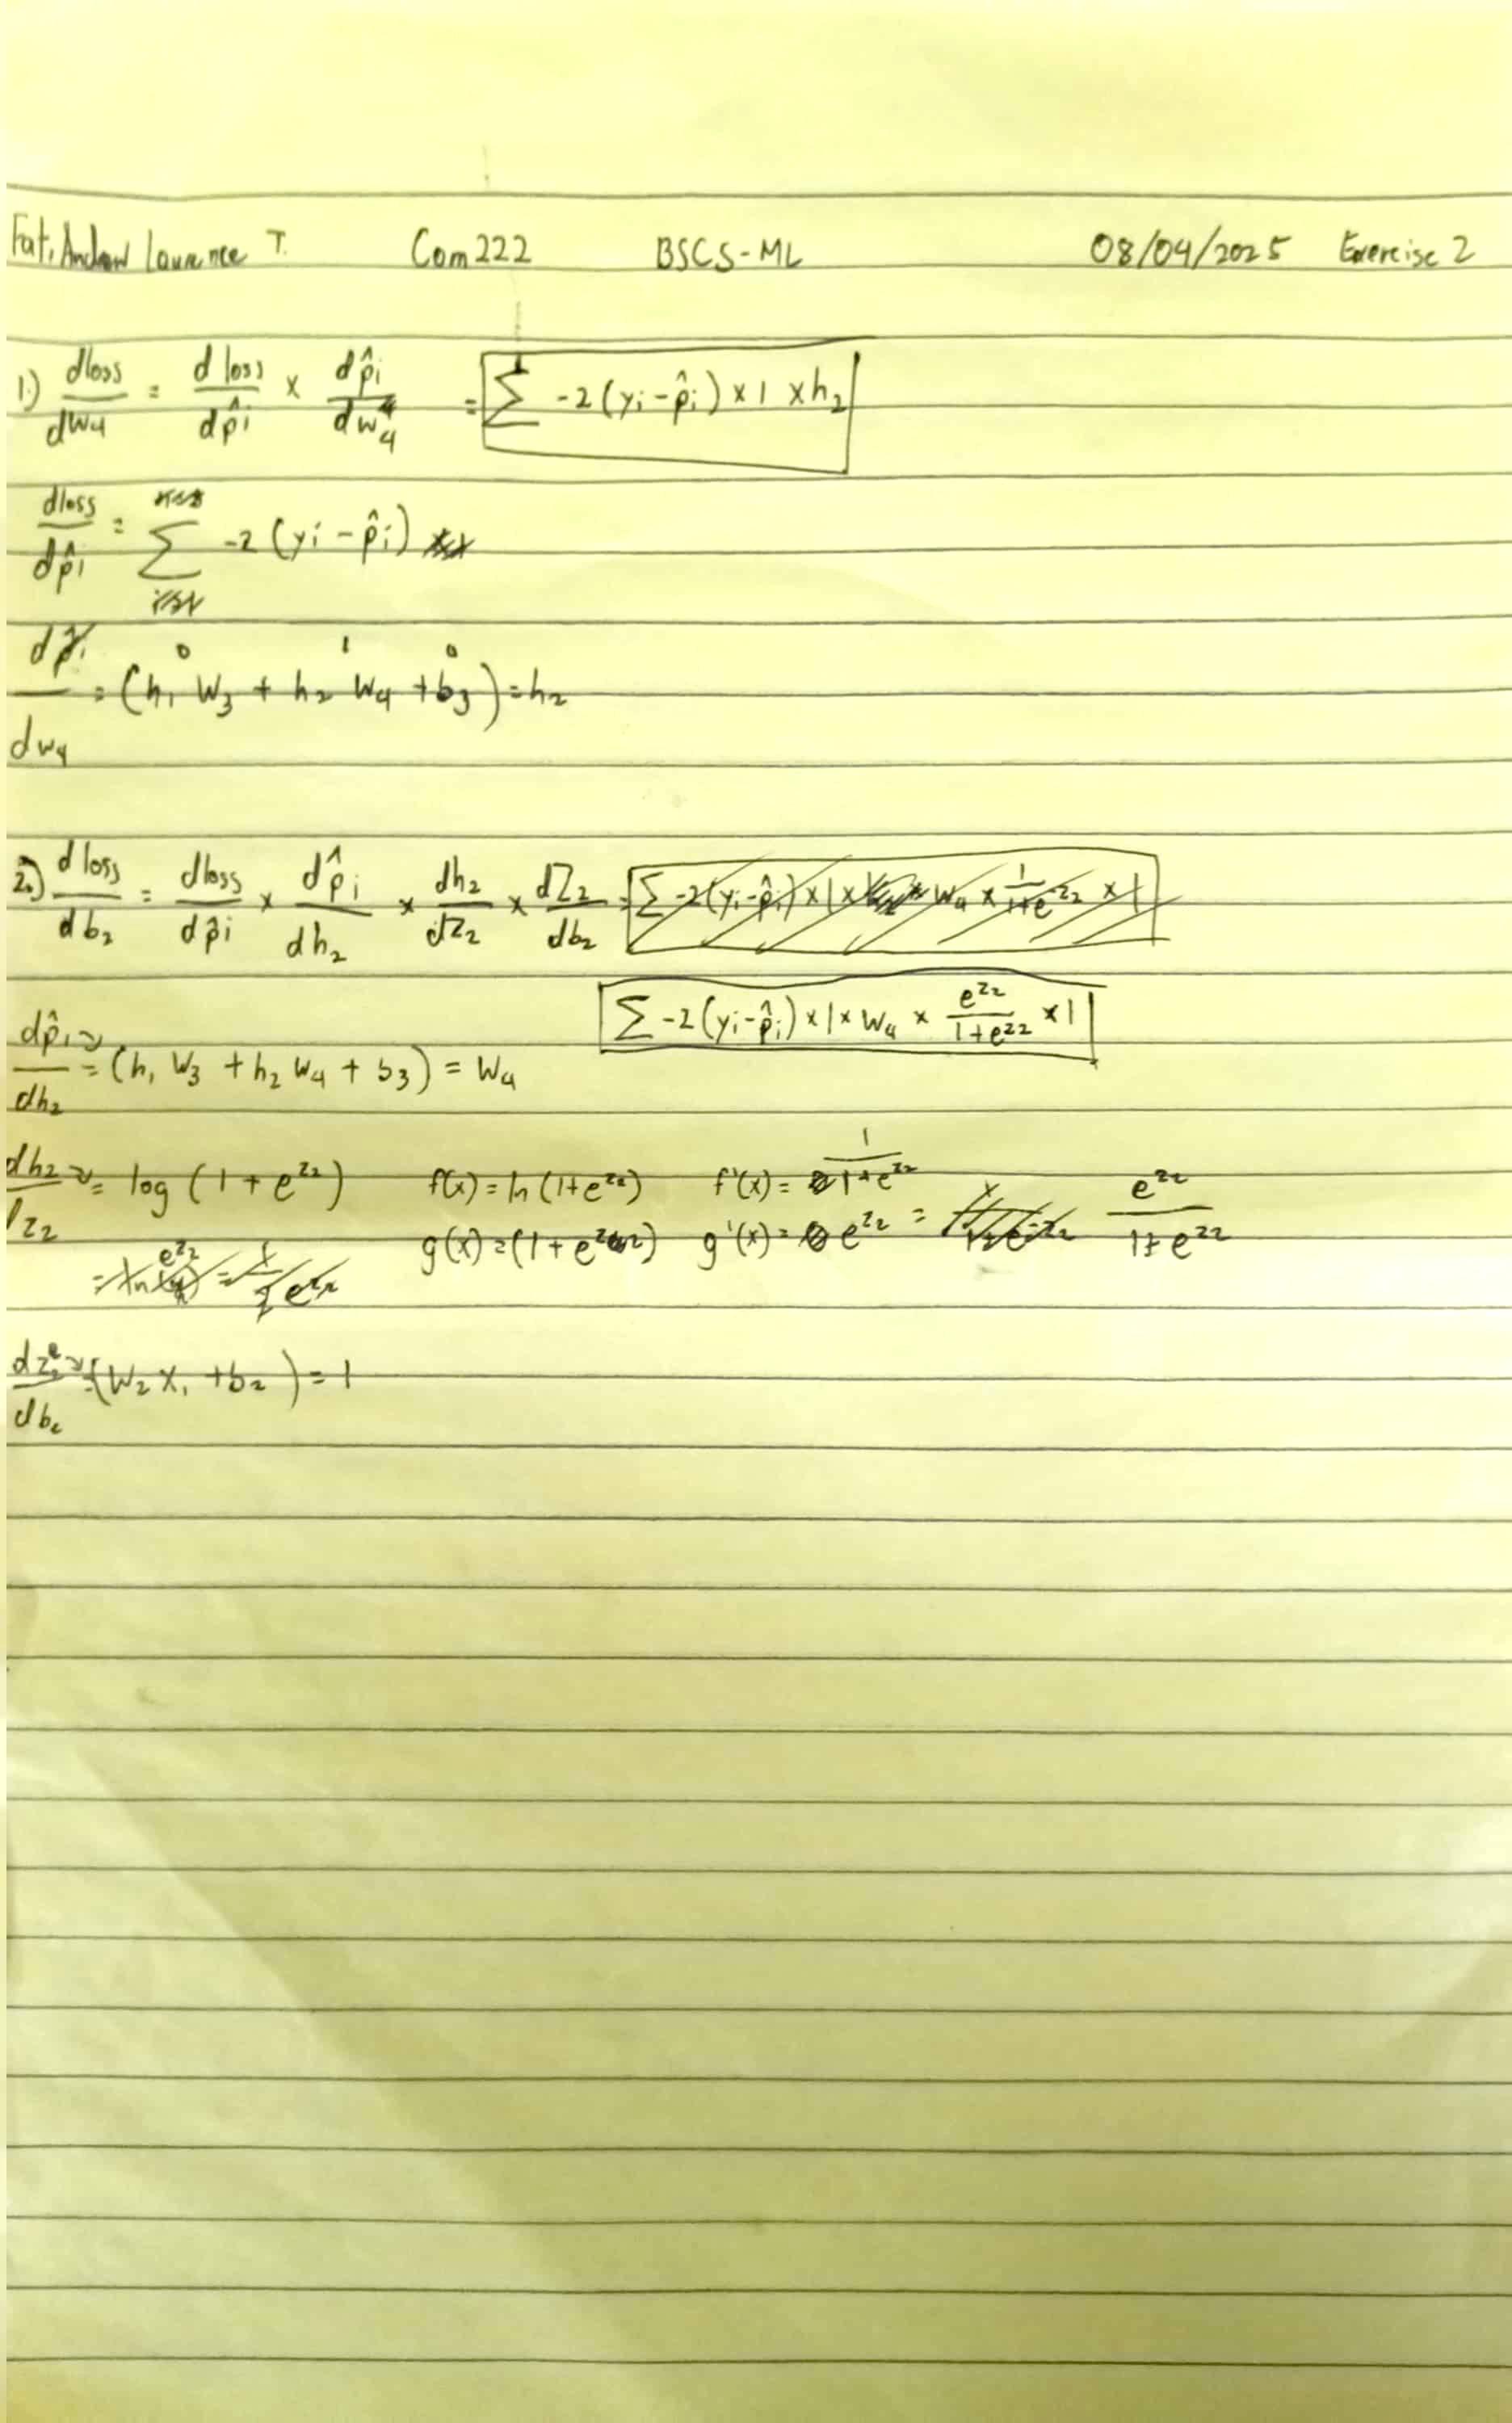 Andrew Laurence T. Com222 BSCS-ML 08/04/2025 Exercise 2
1.) dloss/dw4 = d loss/dp̂i × dp̂i/dw4 = Σ -2(yi-p̂i) × 1 × h2
dloss/dp̂i = Σ -2(yi-p̂i)
0 1 0
dp̂i/dw4 = (h1 W3 + h2 W4 + b3) = h2
2.) d loss/d b2 = dloss/dp̂i × dp̂i/dh2 × dh2/dZ2 × dZ2/db2 = Σ -2(yi-p̂i) × 1 × W4 × 1/1+e^z2 × 1
Σ -2(yi-p̂i) × 1 × W4 × e^z2/1+e^z2 × 1
dp̂i/dh2 = (h1 W3 + h2 W4 + b3) = W4
dh2/dz2 = log(1+e^z2) f(x) = ln(1+e^z2) f'(x) = 1/1+e^z2
g(x) = (1+e^z2) g'(x) = e^z2 = e^z2/1+e^z2
dz2/db2 = (W2 X1 + b2) = 1